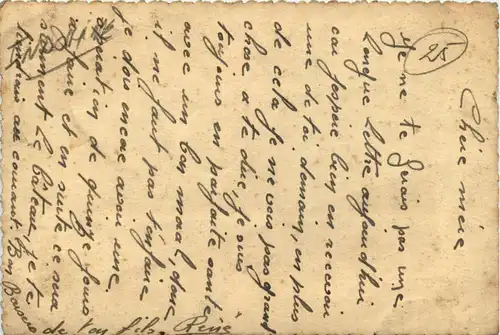 25
Chère mère
Je ne te ferais pas une
longue lettre aujourd'hui
car j'espère bien en recevoir
une de toi demain, en plus
de cela je ne vois pas grand
chose à te dire, je suis
toujours en parfaite santé
avec un bon moral, donc
il ne faut pas t'en faire
je dois encore avoir une
de quinze jours
et en suite ce sera
le bateau, je te
tiendrais au courant Bon Baisers
de ton fils. René